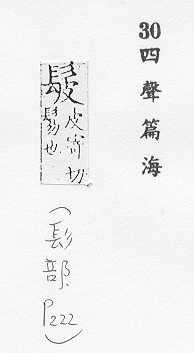 30四聲篇海
髲皮寄切
鬄也
(髟部.P222)